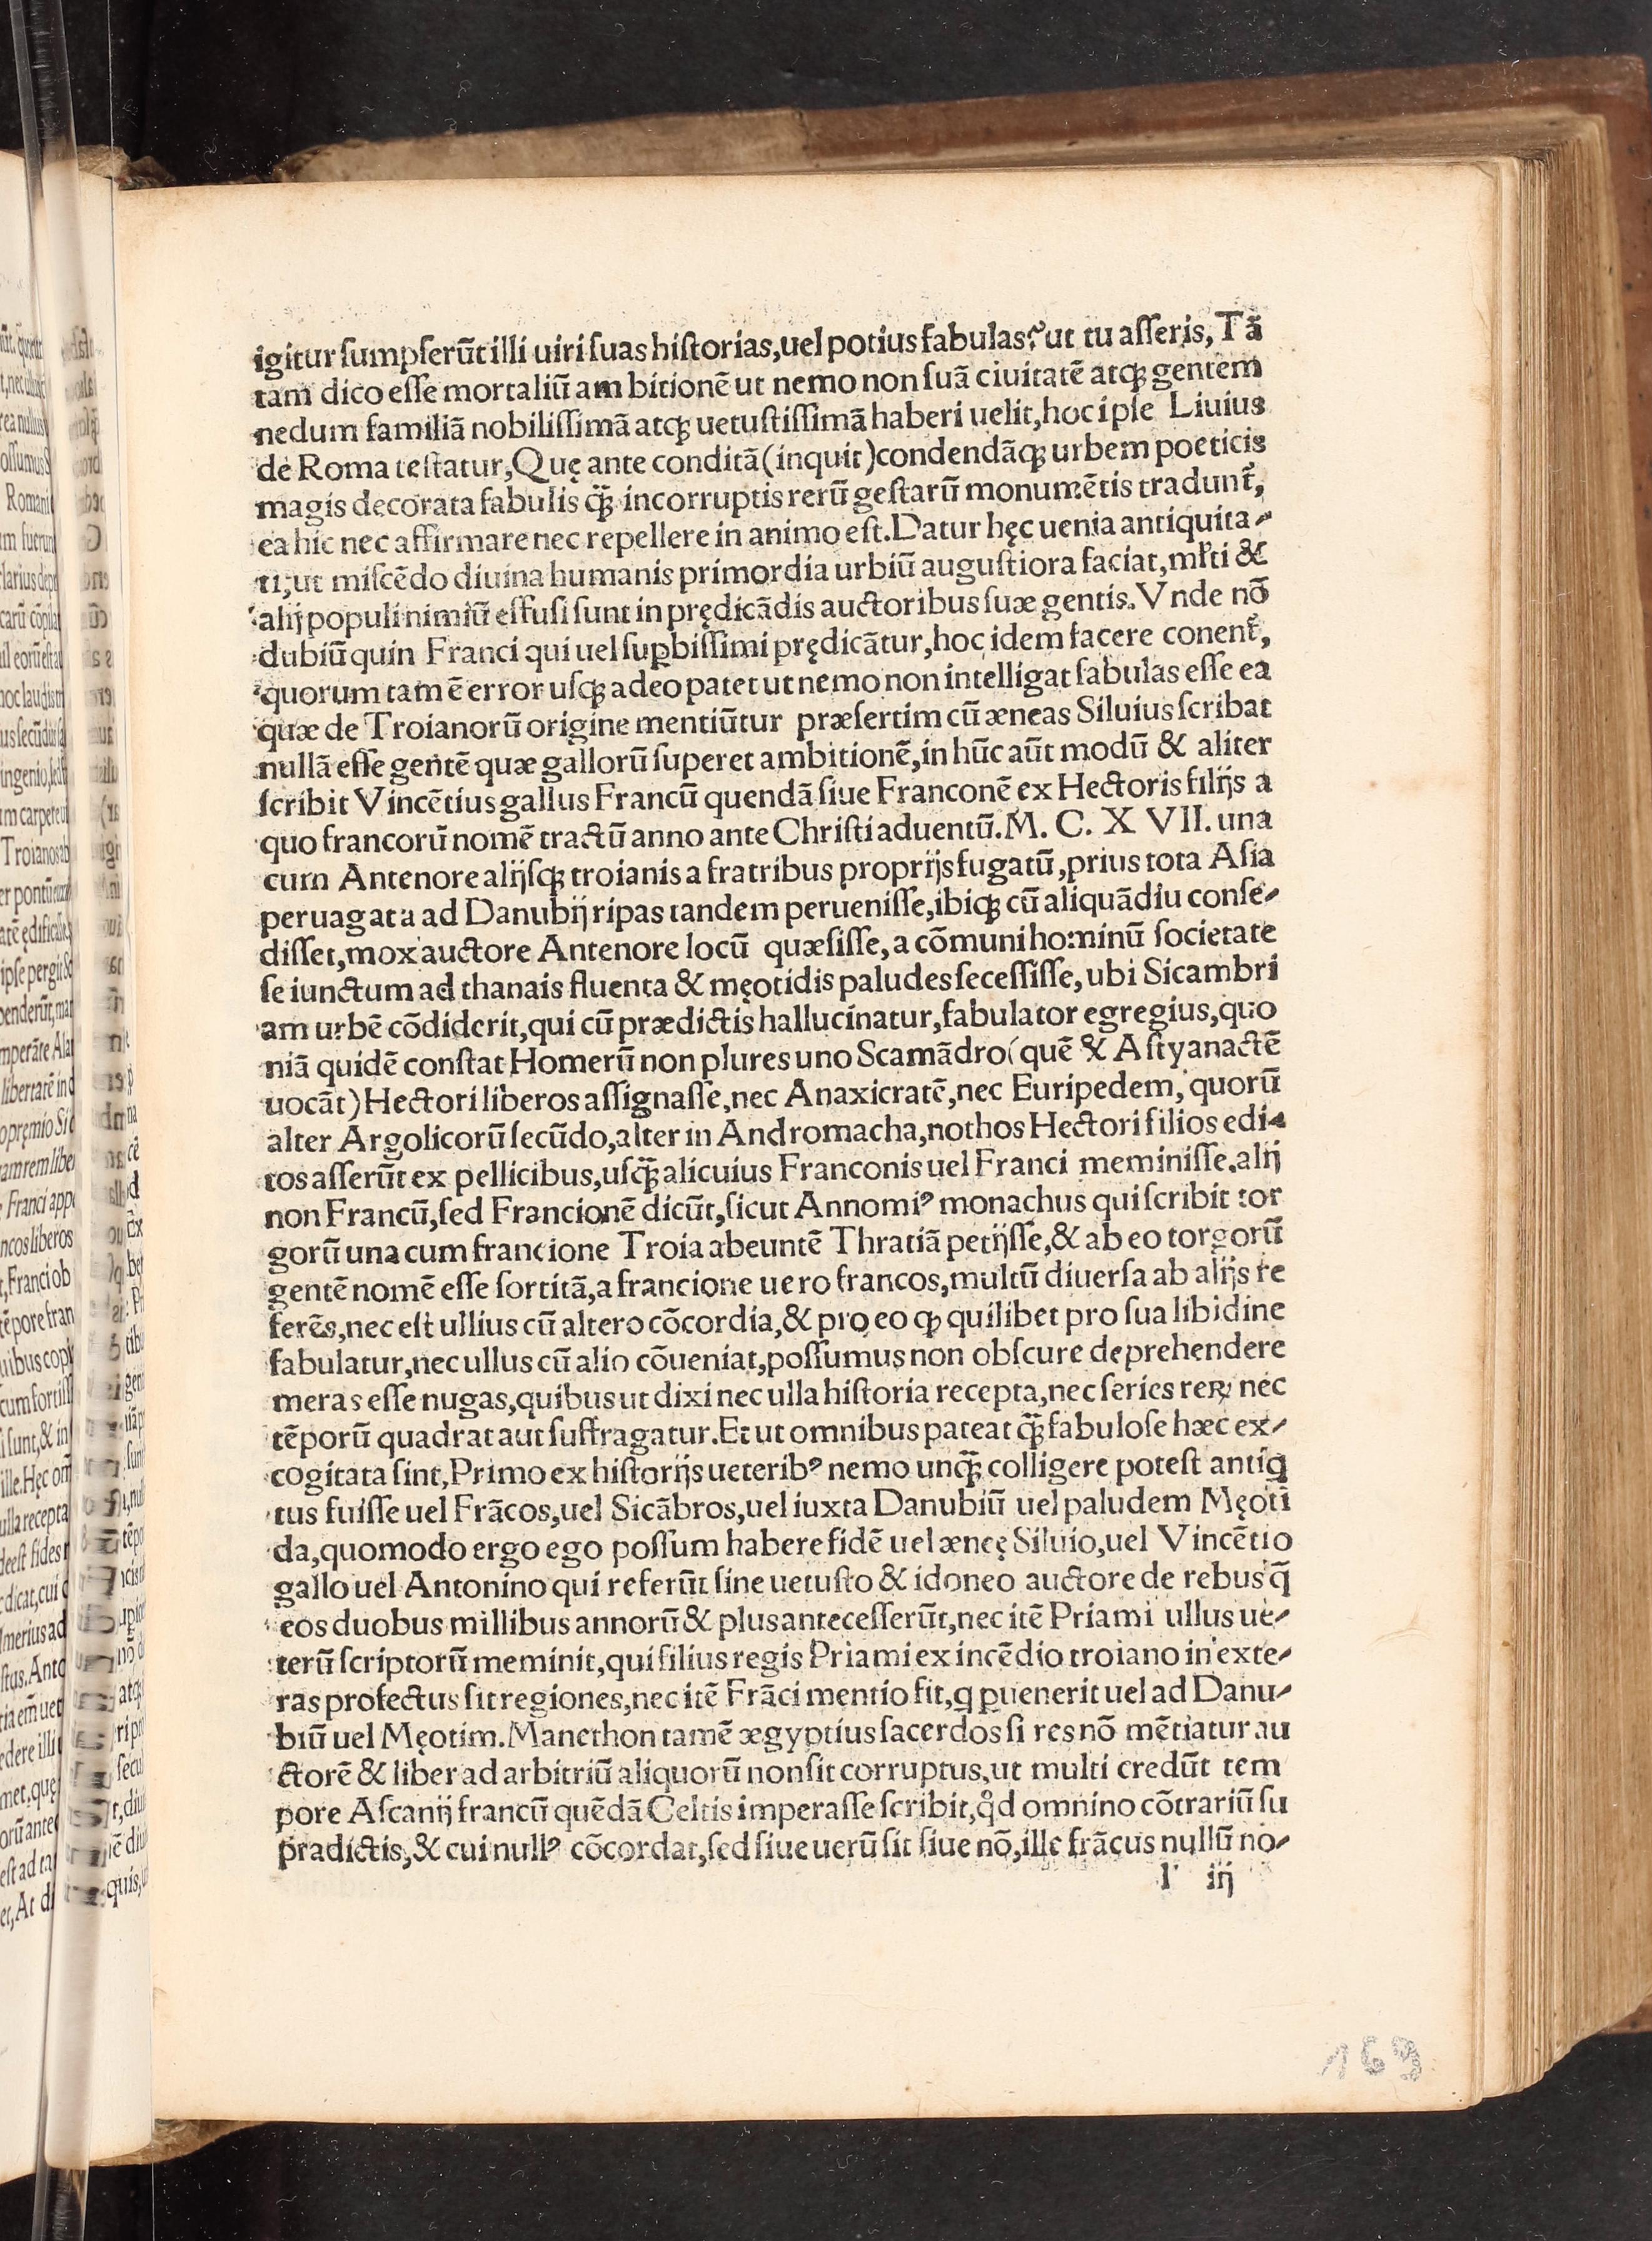 igitur ſumpſerūt illi uiri ſuas hiſtorias,uel potius fabulas?ut tu aſſeris, Tā
tam dico eſſe mortaliū am bitionē ut nemo non ſuā ciuitatē atqꝫ gentem
nedum familiā nobiliſſimā atqꝫ uetuſtiſſimā haberi uelit,hoc ipſe Liuius
de Roma teſtatur,Quę ante conditā(inquit)condendāqꝫ urbem poeticis
magis decorata fabulis q̄ꝫ incorruptis rerū geſtarū monumētis tradunt᷑,
ea hic nec affirmare nec repellere in animo eſt.Datur hęc uenia antiquita⸗
ti,ut miſcēdo diuina humanis primordia urbiū auguſtiora faciat,mr̄ti &
alij populi nimiū effuſi ſunt in prędicādis auctoribus ſuæ gentis.Vnde nō
dubiū quin Franci qui uel ſuꝑbiſſimi prędicātur,hoc idem facere conent᷑,
quorum tam ē error uſqꝫ adeo patet ut nemo non intelligat fabulas eſſe ea
quæ de Troianorū origine mentiūtur præſertim cū æneas Siluius ſcribat
nullā eſſe gentē quæ gallorū ſuperet ambitionē,in hūc aūt modū & aliter
ſcribit Vincētius gallus Francū quendā ſiue Franconē ex Hectoris filijs a
quo francorū nomē tractū anno ante Chriſti aduentū.M. C. X VII. una
cum Antenore alijſqꝫ troianis a fratribus proprijs fugatū,prius tota Aſia
peruagata ad Danubij ripas tandem perueniſſe,ibiqꝫ cū aliquādiu conſe⸗
diſſet,mox auctore Antenore locū quæſiſſe,a cōmuni hominū ſocietate
ſe iunctum ad thanais fluenta & męotidis paludes ſeceſſiſſe,ubi Sicambri
am urbē cōdiderit,qui cū prædictis hallucinatur,fabulator egregius,quo
niā quidē conſtat Homerū non plures uno Scamādro(quē & Aſtyanactē
uocāt)Hectori liberos aſſignaſſe,nec Anaxicratē,nec Euripedem, quorū
alter Argolicorū ſecūdo,alter in Andromacha,nothos Hectori filios edi⸗
tos aſſerūt ex pellicibus,uſq̄ꝫ alicuius Franconis uel Franci meminiſſe.alij
non Francū,ſed Francionē dicūt,ſicut Annomiꝰ monachus qui ſcribit tor
gorū una cum francione Troia abeuntē Thratiā petijſſe,& ab eo torgorū
gentē nomē eſſe ſortitā,a francione uero francos,multū diuerſa ab alijs re
ferēs,nec eſt ullius cū altero cōcordia,& pro eo ꝙ quilibet pro ſua libidine
fabulatur,nec ullus cū alio cōueniat,poſſumus non obſcure deprehendere
meras eſſe nugas,quibus ut dixi nec ulla hiſtoria recepta,nec ſeries reꝝ nec
tēporū quadrat aut ſuffragatur.Et ut omnibus pateat q̄ꝫ fabuloſe hæc ex⸗
cogitata ſint,Primo ex hiſtorijs ueteribꝰ nemo unq̄ꝫ colligere poteſt antiq
tus fuiſſe uel Frācos,uel Sicābros,uel iuxta Danubiū uel paludem Męoti
da,quomodo ergo ego poſſum habere fidē uel æneę Siluio,uel Vincētio
gallo uel Antonino qui referūt ſine uetuſto & idoneo auctore de rebus q̄
eos duobus millibus annorū & plus anteceſſerūt,nec itē Priami ullus ue⸗
terū ſcriptorū meminit,qui filius regis Priami ex incēdio troiano in exte⸗
ras profectus ſit regiones,nec itē Frāci mentio fit,q ꝑuenerit uel ad Danu⸗
biū uel Męotim.Manethon tamē ægyptius ſacerdos ſi res nō mētiatur au
ctorē & liber ad arbitriū aliquorū non ſit corruptus,ut multi credūt tem
pore Aſcanij francū quēdā Celtis imperaſſe ſcribit,qd̕ omnino cōtrariū ſu
pradictis,& cui nullꝰ cōcordat,ſed ſiue uerū ſit ſiue nō,ille frācus nullū no⸗
l iij
169